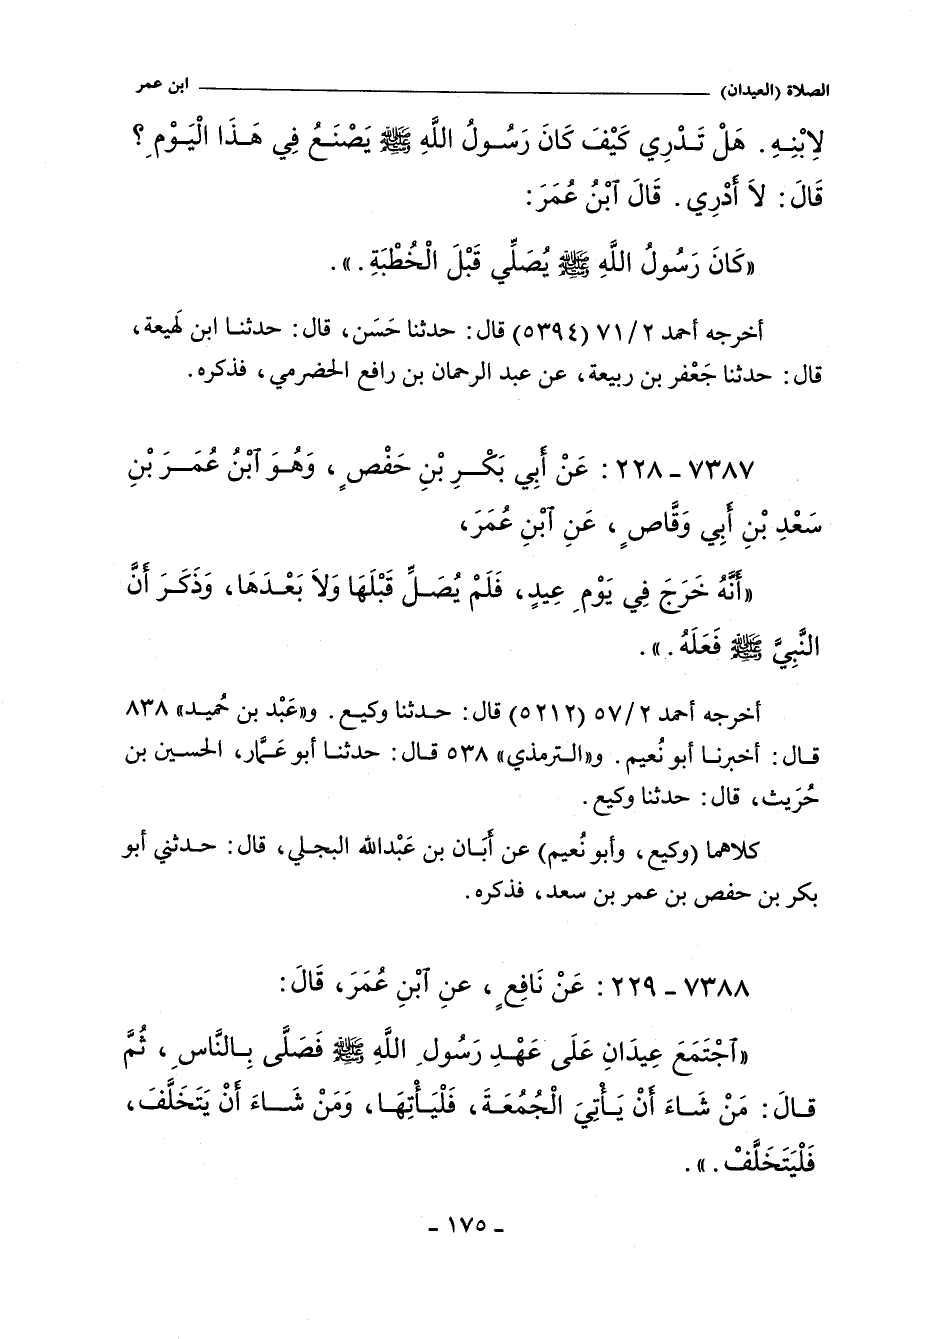 الصلاة (العيدان) ابن عمر
لِابْنِهِ. هَلْ تَدْرِي كَيْفَ كَانَ رَسُولُ اللَّهِ ﷺ يَصْنَعُ فِي هَذَا الْيَوْمِ؟
قَالَ: لاَ أَدْرِي. قَالَ ٱبْنُ عُمَرَ:
«كَانَ رَسُولُ اللَّهِ ﷺ يُصَلِّي قَبْلَ الْخُطْبَةِ.».
أخرجه أحمد ٢/ ٧١ (٥٣٩٤) قال: حدثنا حَسَن، قال: حدثنا ابن لَهيعة،
قال: حدثنا جَعْفر بن ربيعة، عن عبد الرحمان بن رافع الحضرمي، فذكره.
٧٣٨٧ ـ ٢٢٨: عَنْ أَبِي بَكْرِ بْنِ حَفْصٍ، وَهُوَ ٱبْنُ عُمَرَ بْنِ
سَعْدِ بْنِ أَبِي وَقَّاصٍ، عَنِ ٱبْنِ عُمَرَ،
«أَنَّهُ خَرَجَ فِي يَوْمِ عِيدٍ، فَلَمْ يُصَلِّ قَبْلَهَا وَلاَ بَعْدَهَا، وَذَكَرَ أَنَّ
النَّبِيَّ ﷺ فَعَلَهُ.».
أخرجه أحمد ٢/ ٥٧ (٥٢١٢) قال: حدثنا وكيع. و«عَبْد بن حُميد» ٨٣٨
قال: أخبرنا أبو نُعيم. و«الترمذي» ٥٣٨ قال: حدثنا أبو عَمَّار، الحسين بن
حُرَيث، قال: حدثنا وكيع.
كلاهما (وكيع، وأبو نُعيم) عن أَبَان بن عَبْدالله البجلي، قال: حدثني أبو
بكر بن حفص بن عمر بن سعد، فذكره.
٧٣٨٨ ـ ٢٢٩: عَنْ نَافِعٍ، عنِ ٱبْنِ عُمَرَ، قَالَ:
«ٱجْتَمَعَ عِيدَانِ عَلَى عَهْدِ رَسُولِ اللَّهِ ﷺ فَصَلَّى بِالنَّاسِ، ثُمَّ
قَالَ: مَنْ شَاءَ أَنْ يَأْتِيَ الْجُمُعَةَ، فَلْيَأْتِهَا، وَمَنْ شَاءَ أَنْ يَتَخَلَّفَ،
فَلْيَتَخَلَّفْ.».
ـ ١٧٥ ـ